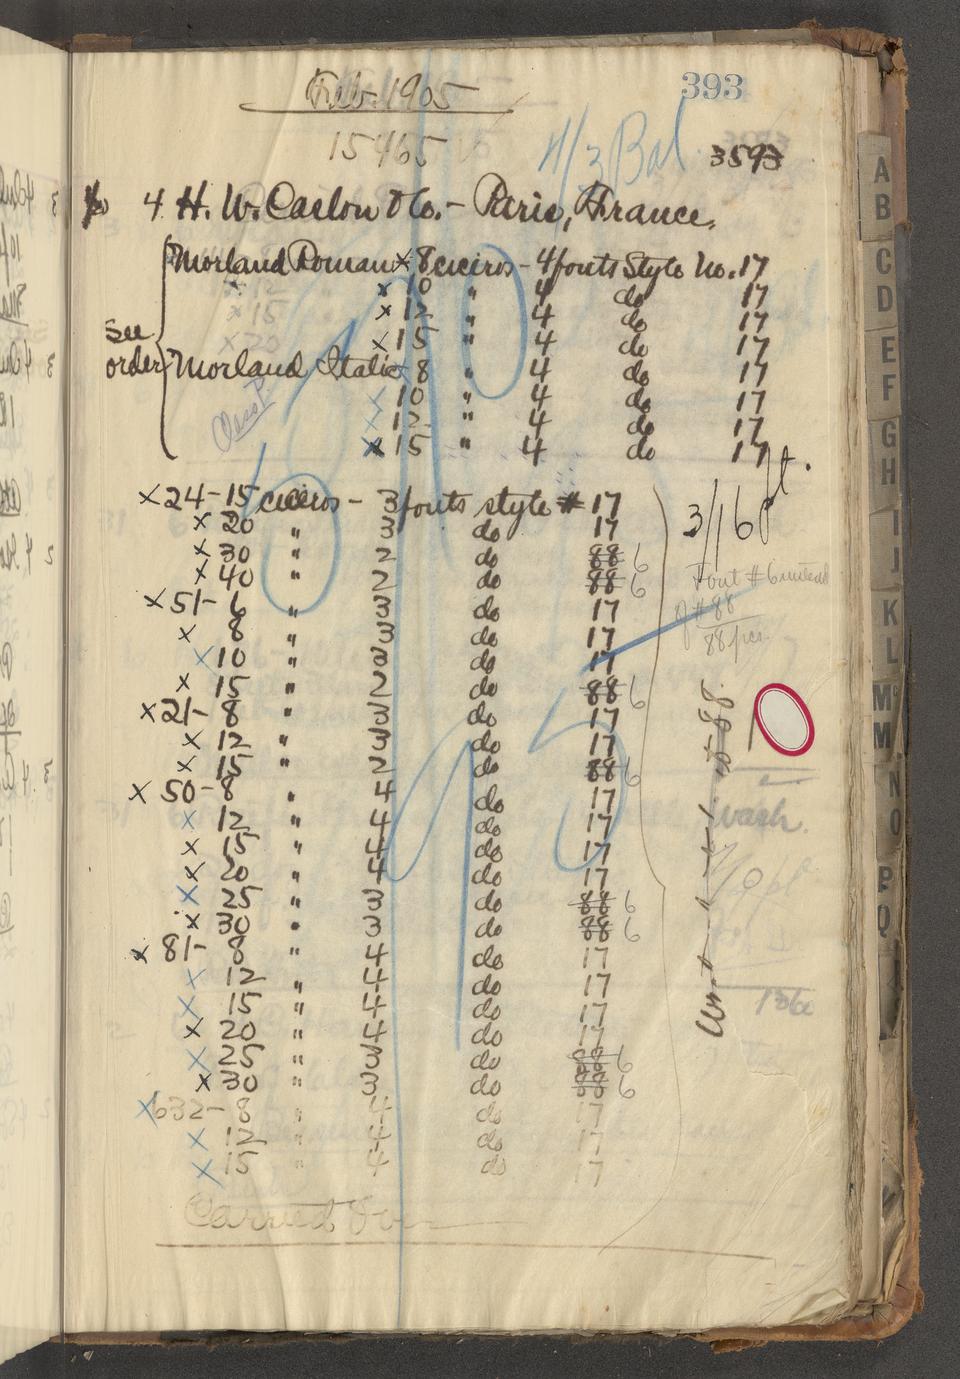 393
Feb. 1905
15465
4/3 Bal 3593
4 H. W. Caslon & Co. - Paris, France.
Morland Roman x 8 ciceros - 4 fonts Style No. 17
x 10 " 4 do 17
x 12 " 4 do 17
x 15 " 4 do 17
See order
Morland Italic x 8 " 4 do 17
x 10 " 4 do 17
x 12 " 4 do 17
x 15 " 4 do 17
x 24 - 15 ciceros - 3 fonts style # 17
x 20 " 3 do 17
x 30 " 2 do 88 6
x 40 " 2 do 88 6
x 51 - 6 " 3 do 17
x 8 " 3 do 17
x 10 " 3 do 17
x 15 " 2 do 88 6
x 21 - 8 " 3 do 17
x 12 " 3 do 17
x 15 " 2 do 88 6
x 50 - 8 " 4 do 17
x 12 " 4 do 17
x 15 " 4 do 17
x 20 " 4 do 17
x 25 " 3 do 88 6
x 30 " 3 do 88 6
x 81 - 8 " 4 do 17
x 12 " 4 do 17
x 15 " 4 do 17
x 20 " 4 do 17
x 25 " 3 do 88 6
x 30 " 3 do 88 6
x 632 - 8 " 4 do 17
x 12 " 4 do 17
x 15 " 4 do 17
Carried Over
3/16 pt.
Font # 6 instead
of # 88
88 pcs.
wash.
A
B
C
D
E
F
G
H
I
J
K
L
M
M
N
O
P
Q